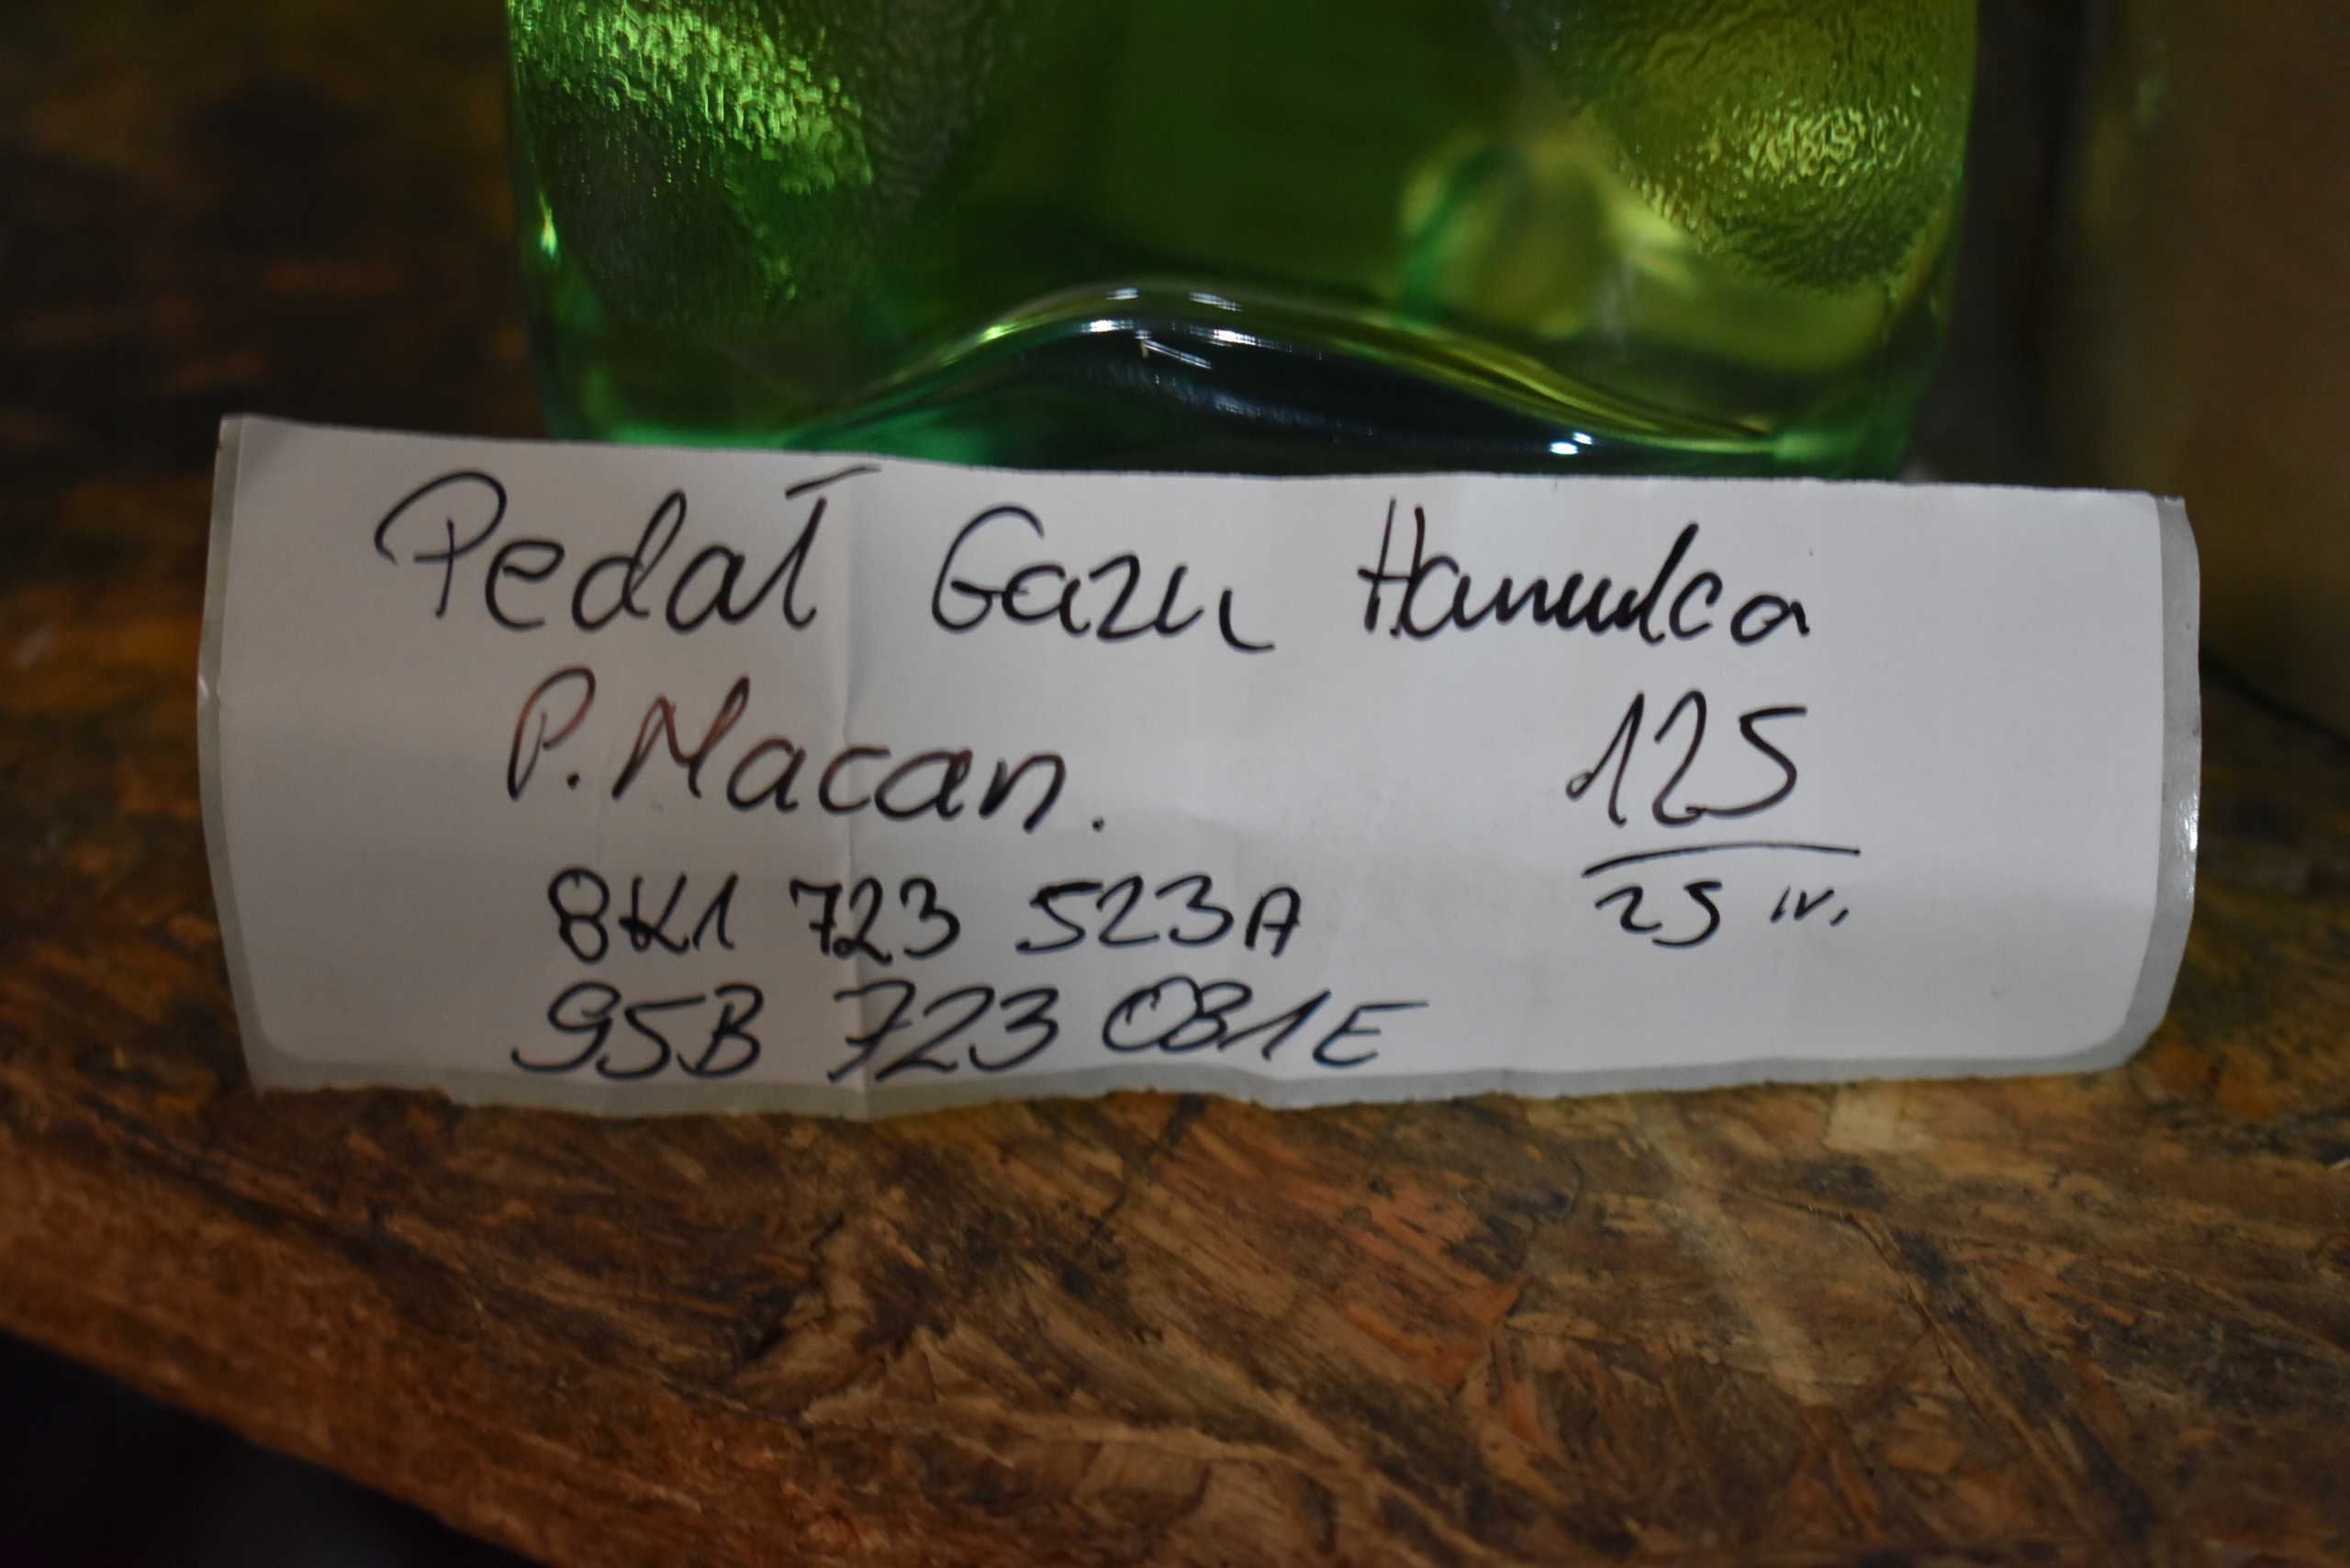 Pedał Gazu Hamulca
P. Macan.
125
8K1 723 523A
25 IV.
95B 723 081E